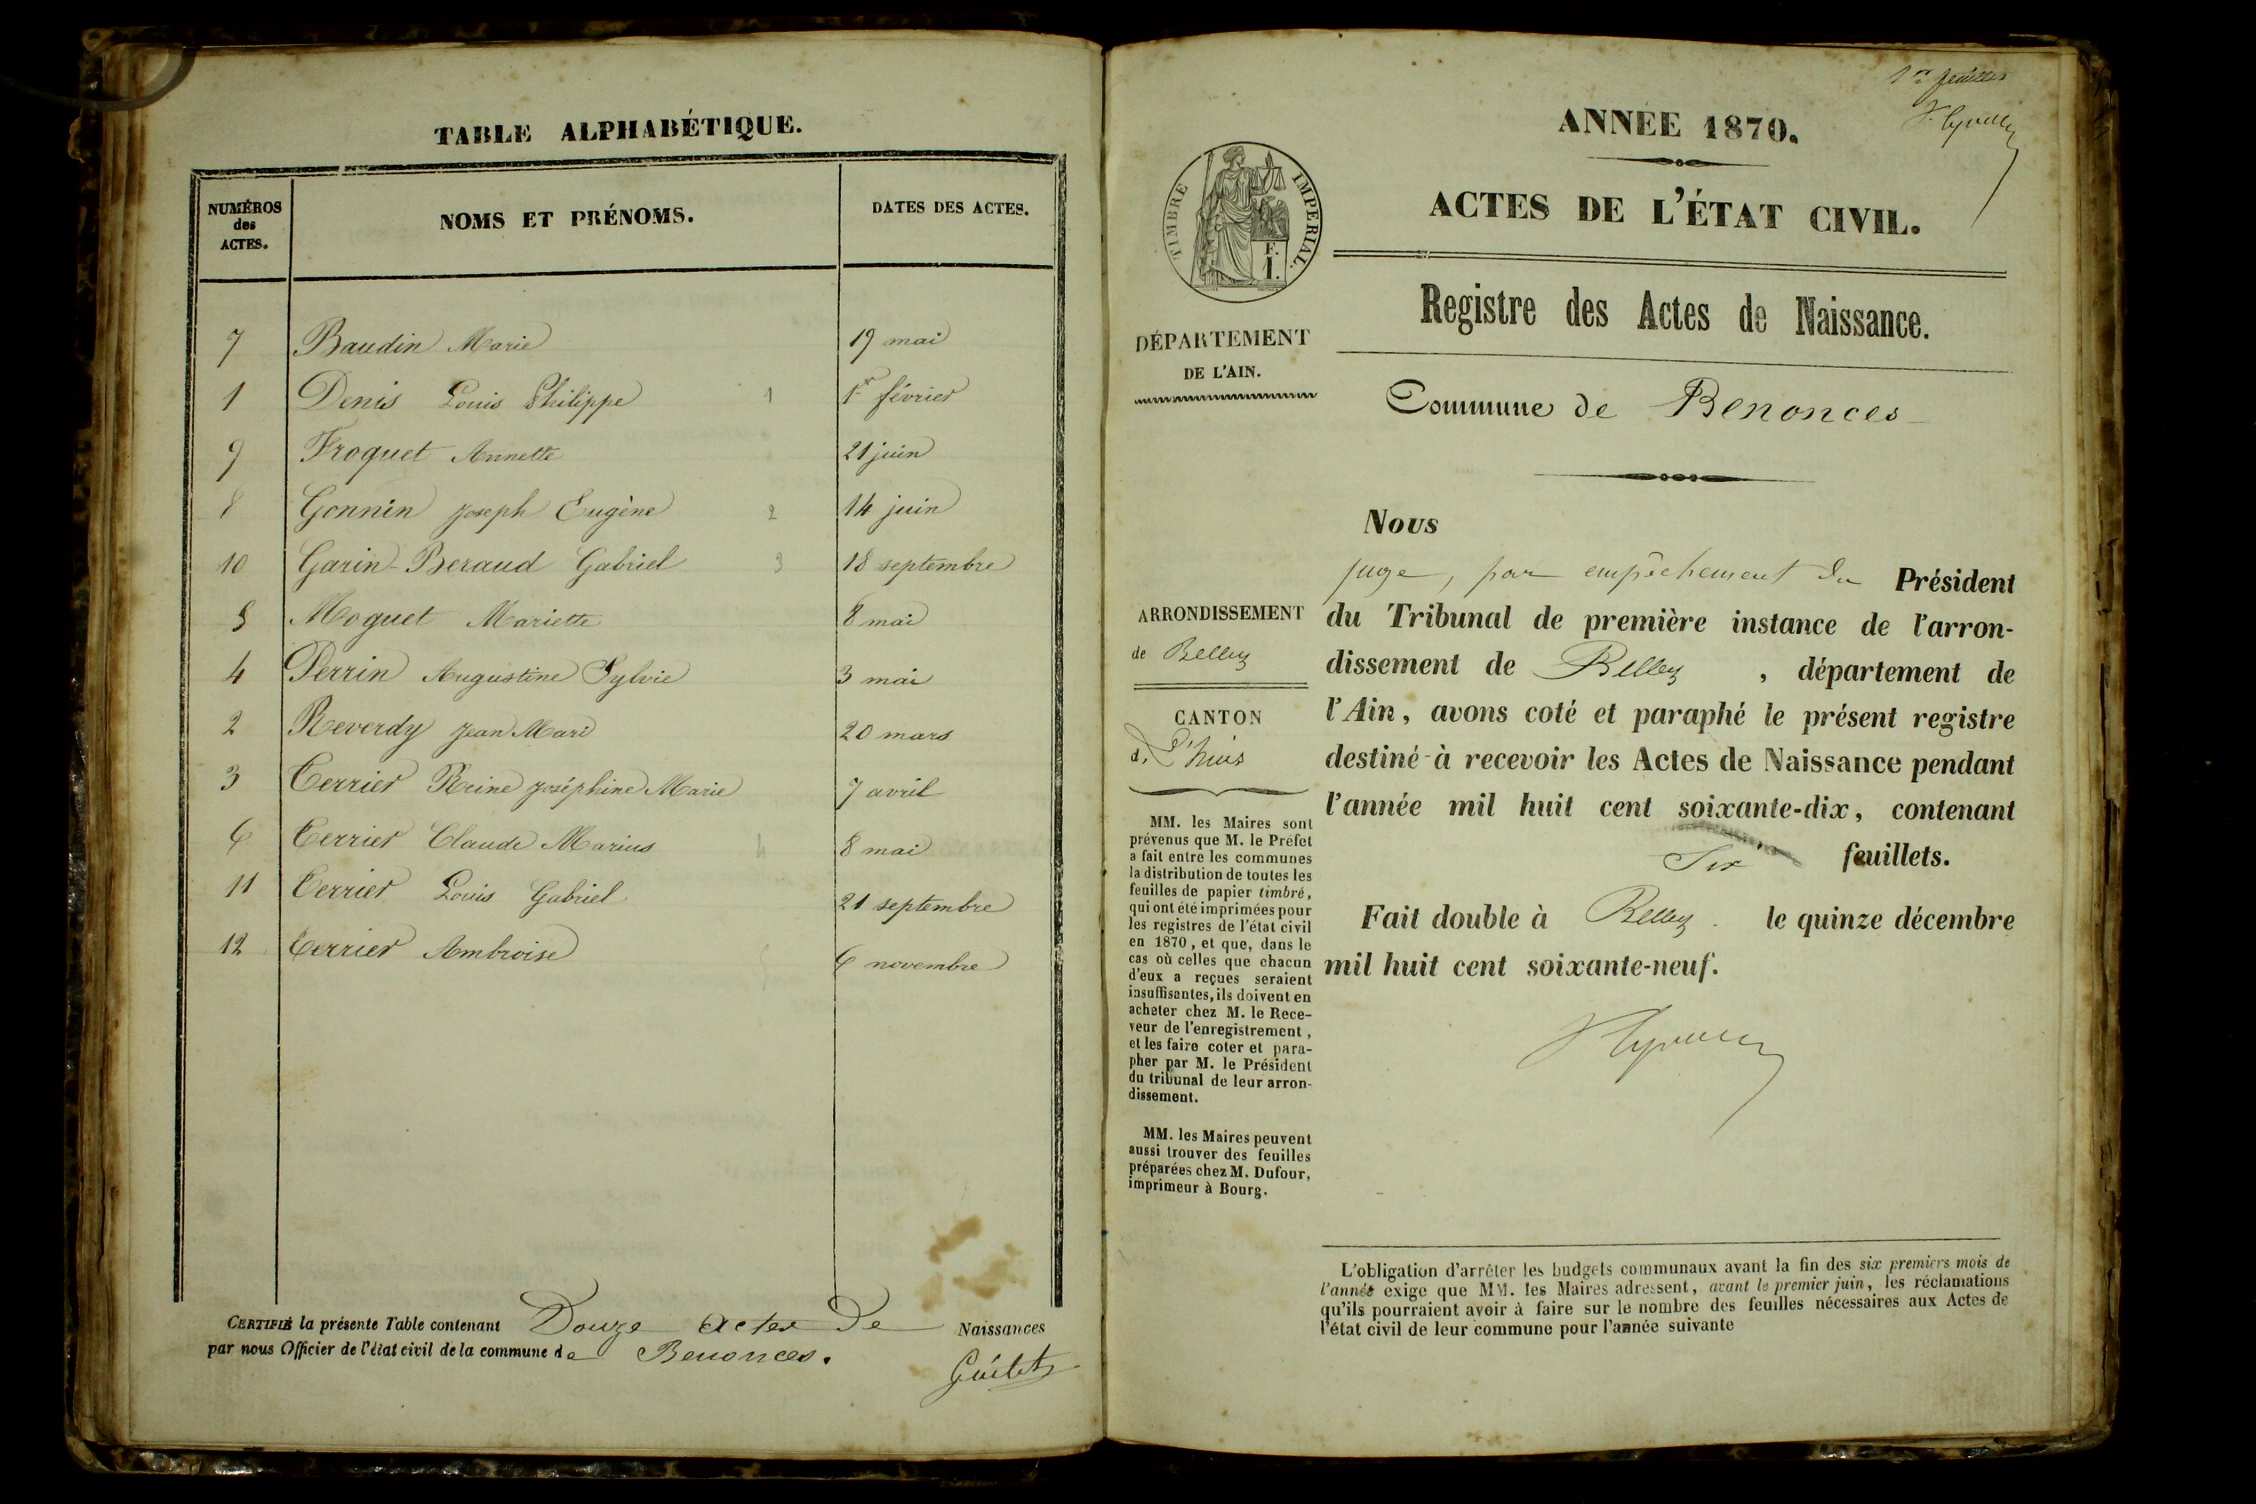 TABLE ALPHABÉTIQUE.
NUMÉROS des ACTES.
NOMS ET PRÉNOMS.
DATES DES ACTES.
7 Baudin Marie 19 mai
1 Denis Louis Philippe 1 1er février
9 Froquet Annette 21 juin
8 Gonnin joseph Eugène 2 14 juin
10 Garin-Beraud Gabriel 3 18 septembre
5 Moguet Mariette 8 mai
4 Perrin Augustine Sylvie 3 mai
2 Reverdy jean Mari 20 mars
3 Terrier Reine joséphine Marie 7 avril
6 Terrier Claude Marius 4 8 mai
11 Terrier Louis Gabriel 21 septembre
12 Terrier Ambroise 6 novembre
CERTIFIÉ la présente Table contenant Douze actes De Naissances
par nous Officier de l'état civil de la commune de Benonces.
1er feuillet
ANNÉE 1870.
ACTES DE L'ÉTAT CIVIL.
TIMBRE IMPERIAL.
F.
1.
Registre des Actes de Naissance.
DÉPARTEMENT
DE L'AIN.
Commune de Benonces
Nous
juge, par empêchement du Président
du Tribunal de première instance de l'arron-
dissement de Belley, département de
l'Ain, avons coté et paraphé le présent registre
destiné à recevoir les Actes de Naissance pendant
l'année mil huit cent soixante-dix, contenant
Six feuillets.
Fait double à Belley. le quinze décembre
mil huit cent soixante-neuf.
ARRONDISSEMENT
de Belley
CANTON
d. L'huis
MM. les Maires sont
prévenus que M. le Préfet
a fait entre les communes
la distribution de toutes les
feuilles de papier timbré,
qui ont été imprimées pour
les registres de l'état civil
en 1870, et que, dans le
cas où celles que chacun
d'eux a reçues seraient
insuffisantes, ils doivent en
acheter chez M. le Rece-
veur de l'enregistrement,
et les faire coter et para-
pher par M. le Président
du tribunal de leur arron-
dissement.
MM. les Maires peuvent
aussi trouver des feuilles
préparées chez M. Dufour,
imprimeur à Bourg.
L'obligation d'arrêter les budgets communaux avant la fin des six premiers mois de
l'année exige que MM. les Maires adressent, avant le premier juin, les réclamations
qu'ils pourraient avoir à faire sur le nombre des feuilles nécessaires aux Actes de
l'état civil de leur commune pour l'année suivante